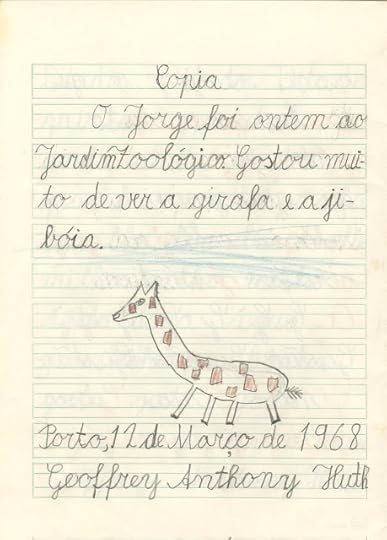 Copia
O Jorge foi ontem ao
Jardim Zoológico. Gostou mui-
to de ver a girafa e a ji-
bóia.
Porto, 12 de Março de 1968
Geoffrey Anthony Huth